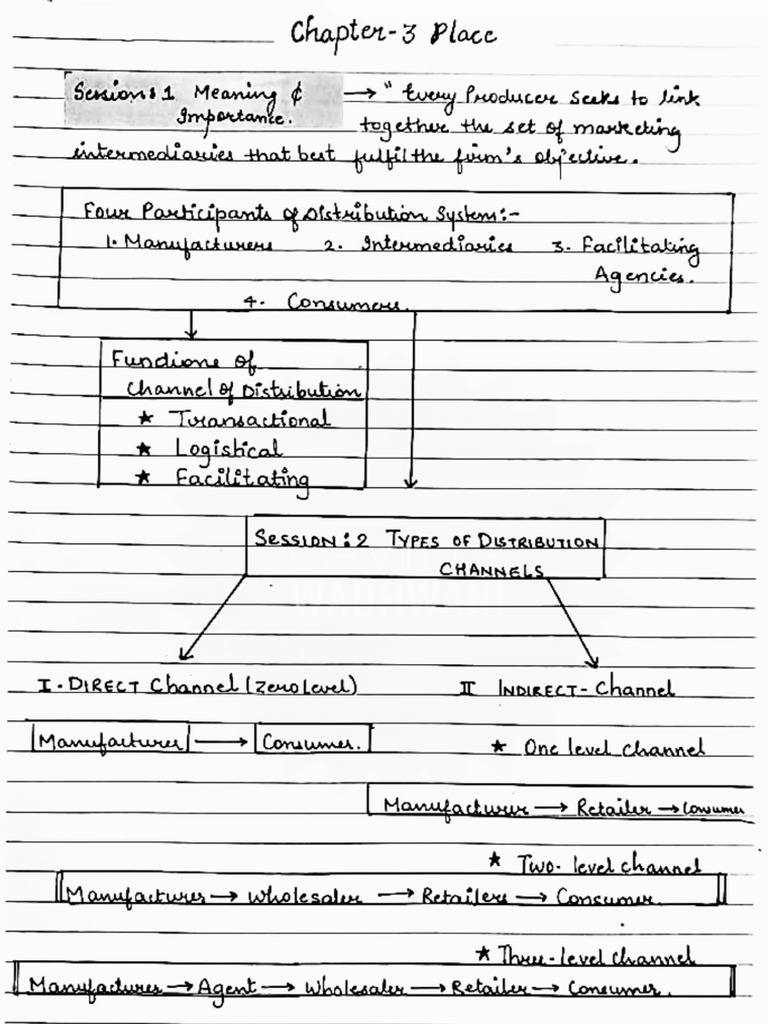 Chapter-3 Place
Session:1 Meaning & Importance. → " Every Producer seeks to link
together the set of marketing
intermediaries that best fulfil the firm's objective.
Four Participants of Distribution System:-
1. Manufacturers 2. Intermediaries 3. Facilitating
Agencies.
4. Consumers.
Functions of
Channel of Distribution
★ Transactional
★ Logistical
★ Facilitating
SESSION:2 TYPES OF DISTRIBUTION
CHANNELS
I. DIRECT Channel (Zero level) II INDIRECT-Channel
Manufacturer → Consumer. ★ One level channel
Manufacturer → Retailer → Consumer
★ Two-level channel
Manufacturer → Wholesaler → Retailers → Consumer.
★ Three-level channel
Manufacturer → Agent → Wholesaler → Retailer → Consumer.